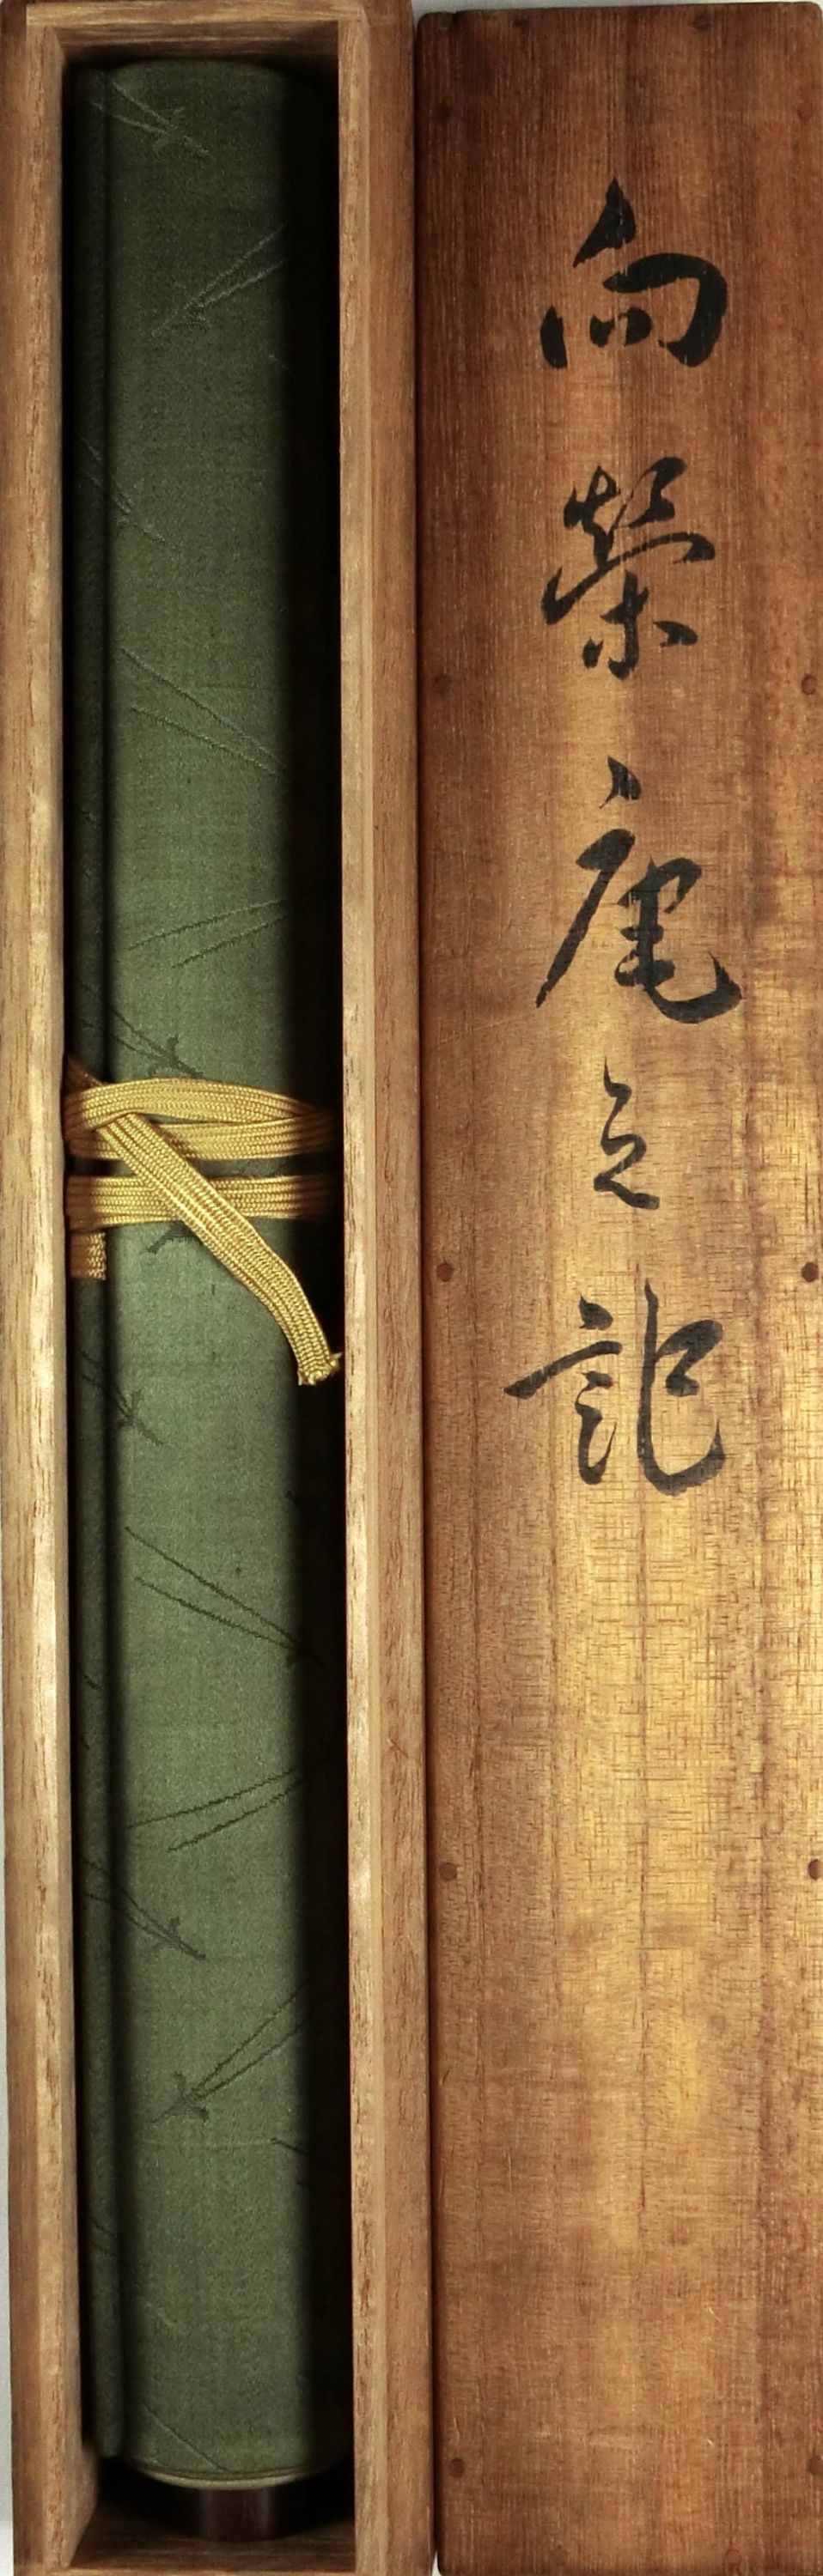 向榮庵之記